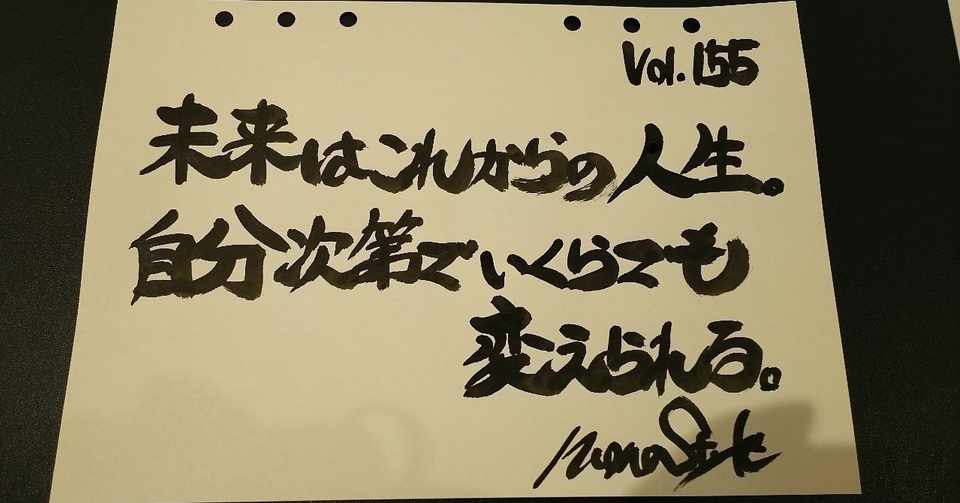 Vol.155
未来はこれからの人生。
自分次第でいくらでも
変えられる。